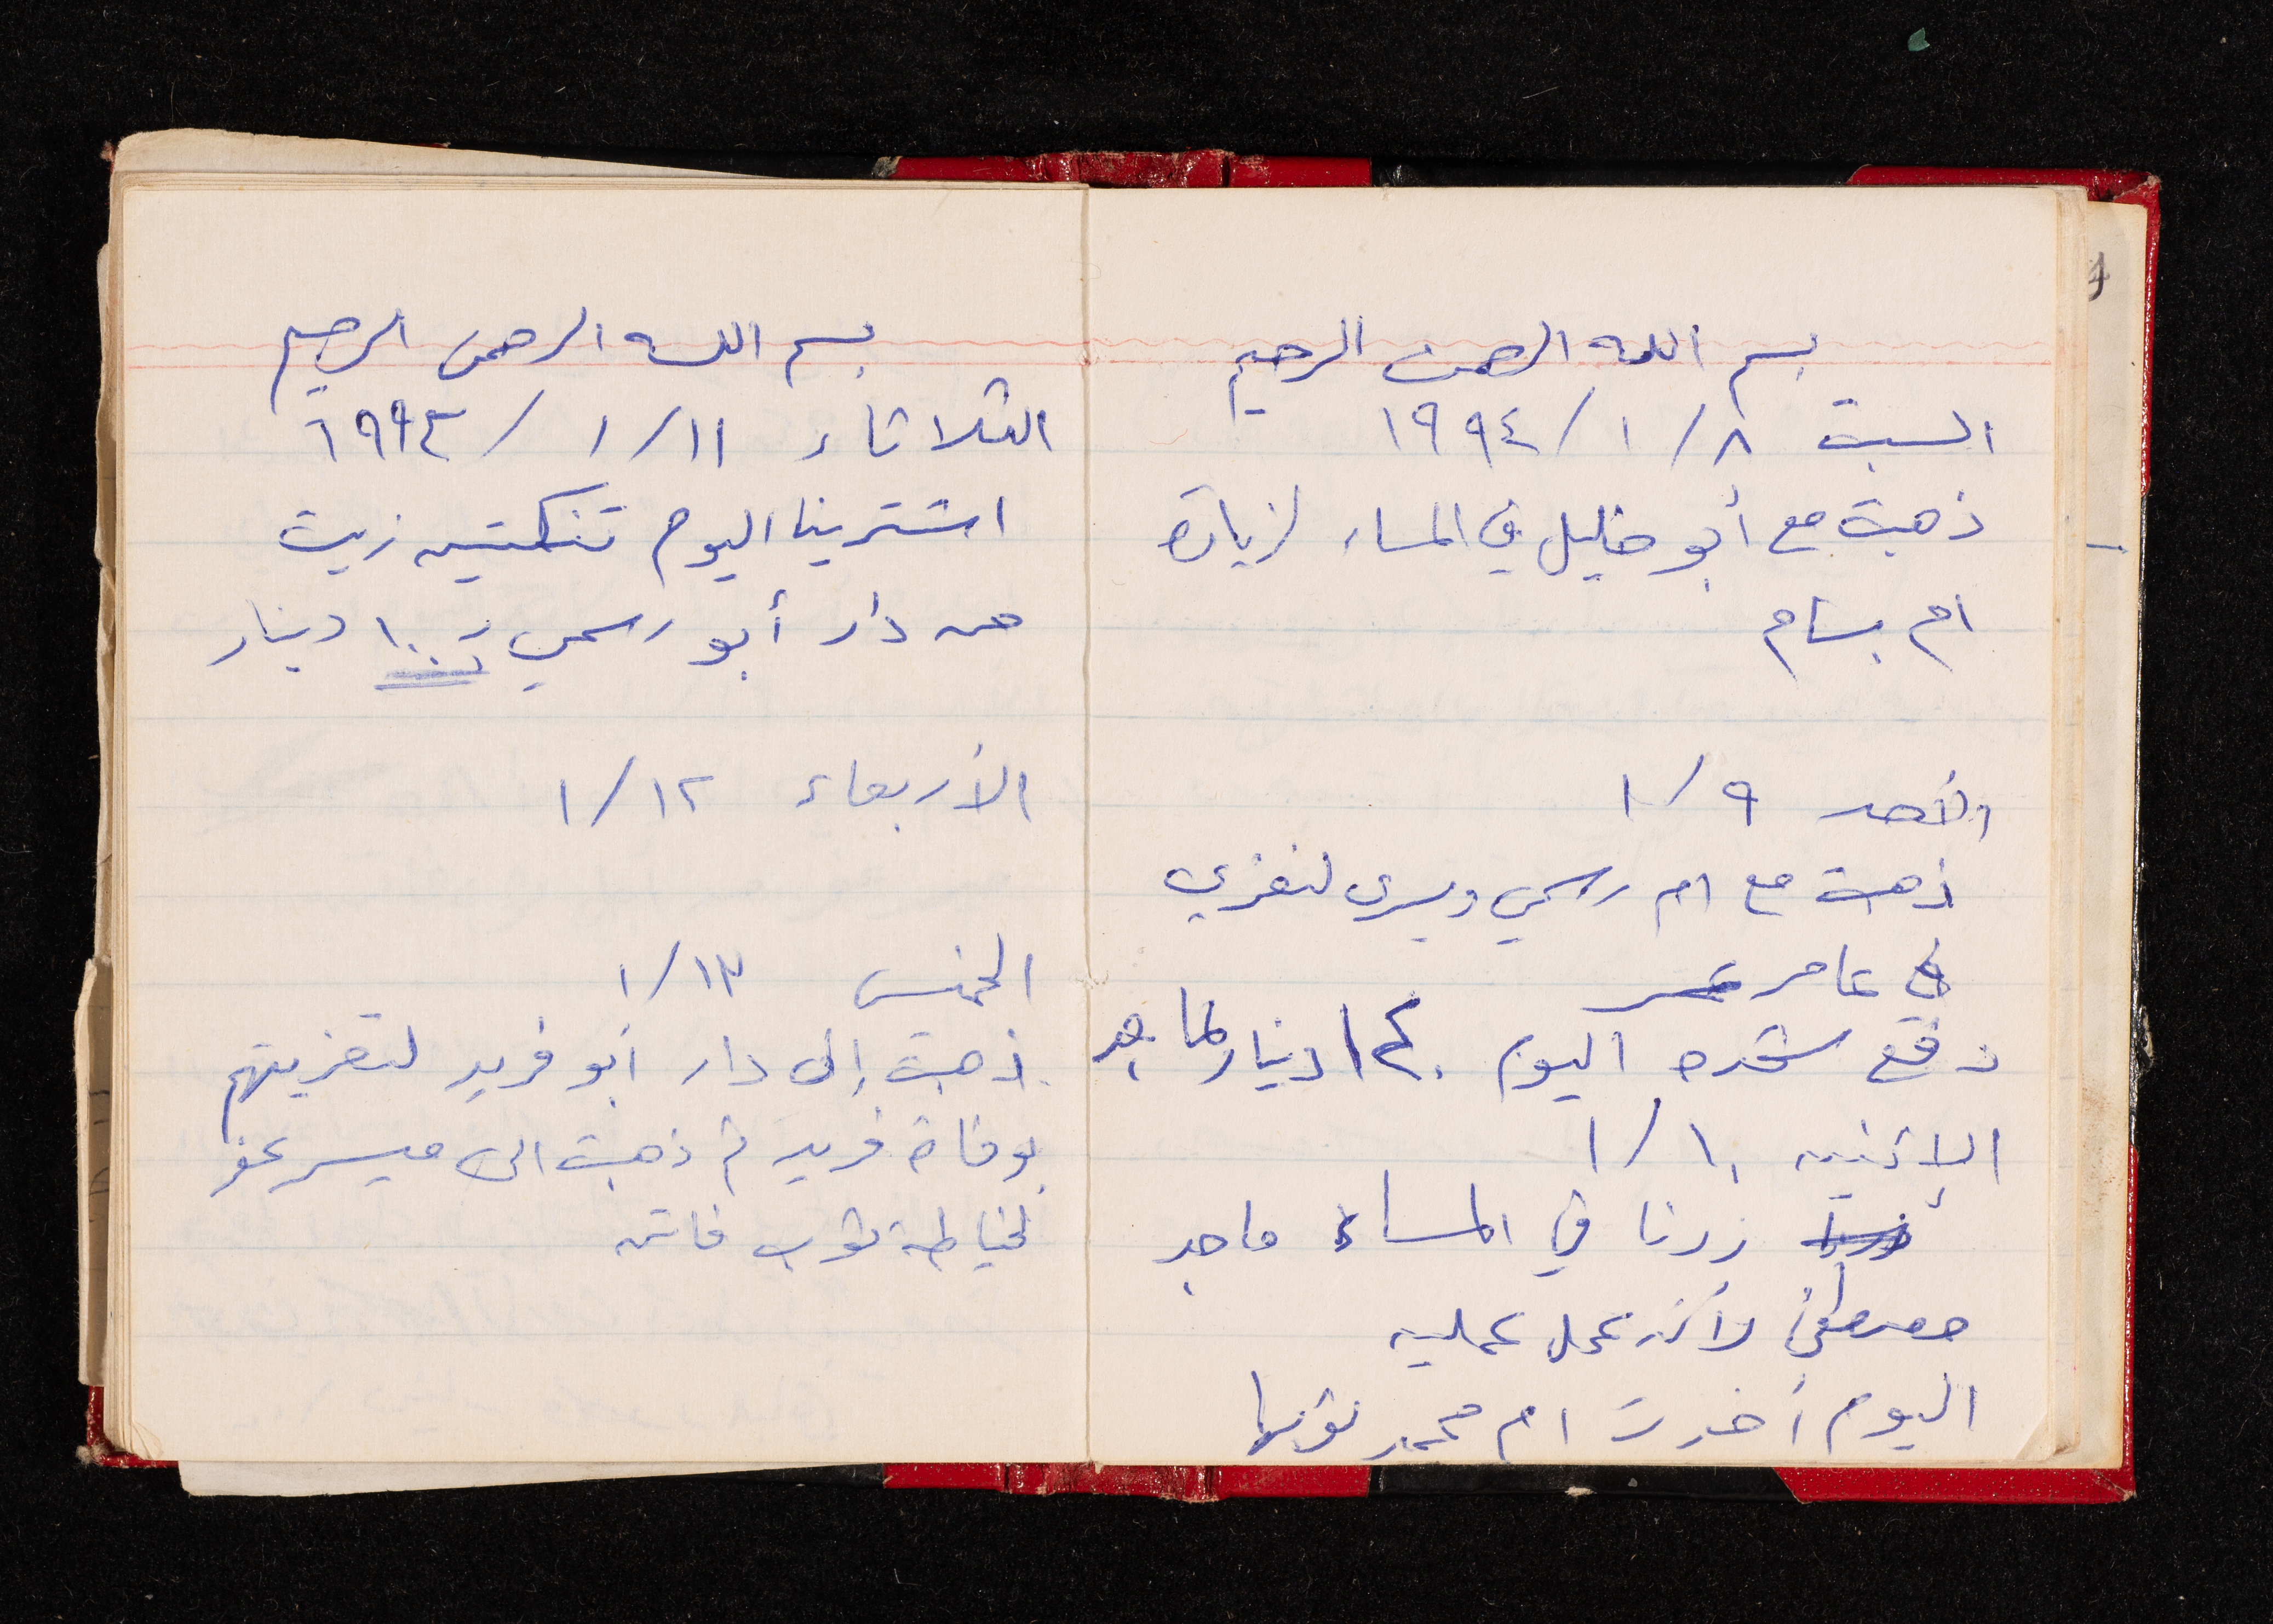 بسم الله الرحمن الرحيم
السبت ٨/١/١٩٩٤
ذهبت مع أبو خليل في المساء لزيارة
ام بسام
الأحد ٩/١
ذهبت مع ام رسمي ويسرى لنعزي
في عامر
دفع شحده اليوم ١٢٠ دينار لماجد
الاثنين ١٠/١
زرنا في المساء ماجد
مصطفى لأنه عمل عمليه
اليوم أخذت ام محمد ثوبها
بسم الله الرحمن الرحيم
الثلاثاء ١١/١/١٩٩٤
اشترينا اليوم تنكتين زيت
من دار أبو رسمي ب ١٠٠ دينار
الأربعاء ١٢/١
الخميس ١٣/١
ذهبت إلى دار ابو فريد لتعزيتهم
بوفاة فريد ثم ذهبت الى ميسر
لخياطة ثوب فاتن